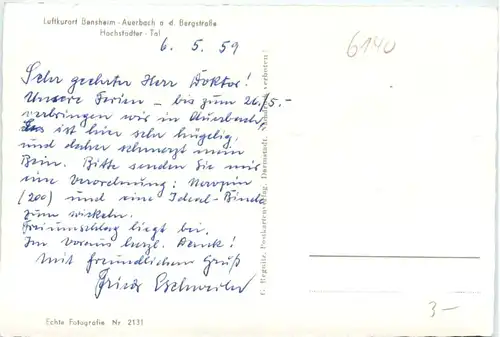 Luftkurort Bensheim - Auerbach a. d. Bergstraße
Hochstädter - Tal
6. 5. 59
6140
Sehr geehrter Herr Doktor!
Unsere Ferien – bis zum 26./5. –
verbringen wir in Auerbach,
Es ist hier sehr hügelig,
und daher schmerzt mein
Bein. Bitte senden Sie mir
eine Verordnung: Neropin
(200) und eine Ideal-Binde
zum wickeln.
Freiumschlag liegt bei.
Im Voraus herzl. Dank!
Mit freundlichem Gruß
Frieda
Echte Fotografie Nr 2131
Postkartenverlag, Darmstadt, verboten!
3 –